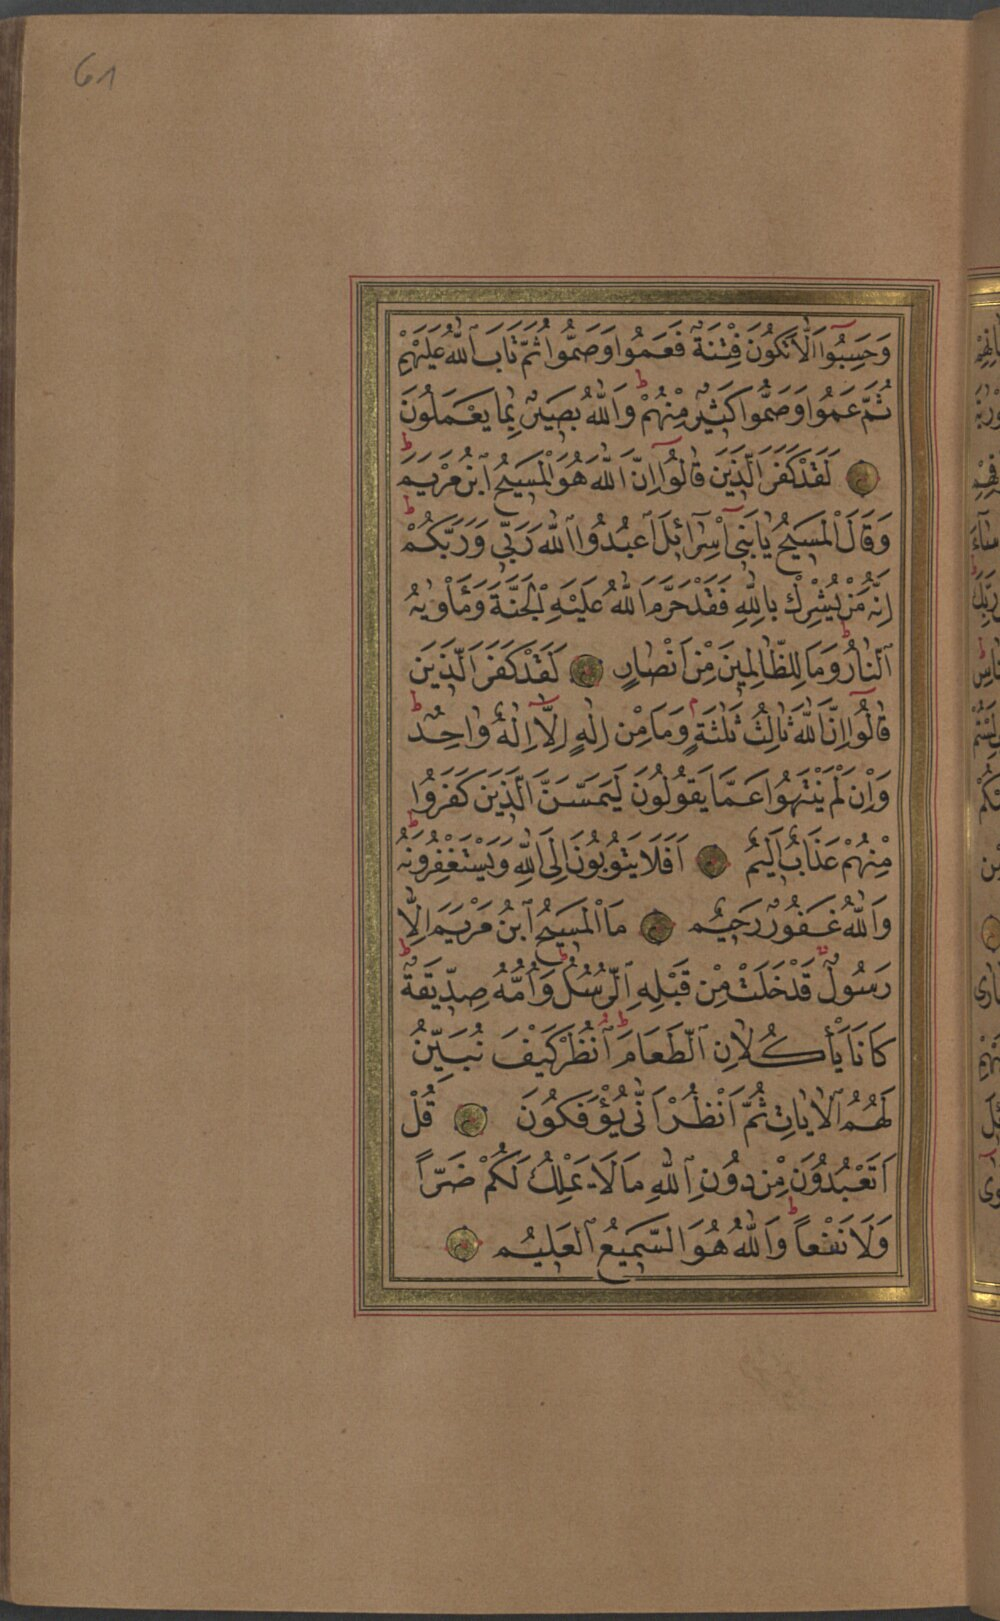 61
وَحَسِبُوا اَلَّا تَكُونَ فِتْنَةٌ فَعَمُوا وَصَمُّوا ثُمَّ تَابَ اللّٰهُ عَلَيْهِمْ
ثُمَّ عَمُوا وَصَمُّوا كَثِيرٌ مِنْهُمْ وَاللّٰهُ بَصِيرٌ بِمَا يَعْمَلُونَ
لَقَدْ كَفَرَ الَّذِينَ قَالُوا اِنَّ اللّٰهَ هُوَ الْمَسِيحُ ابْنُ مَرْيَمَ
وَقَالَ الْمَسِيحُ يَا بَنِى اِسْرَائِلَ اعْبُدُوا اللّٰهَ رَبِّى وَرَبَّكُمْ
اِنَّهُ مَنْ يُشْرِكْ بِاللّٰهِ فَقَدْ حَرَّمَ اللّٰهُ عَلَيْهِ الْجَنَّةَ وَمَأْوٰيهُ
النَّارُ وَمَا لِلظَّالِمِينَ مِنْ اَنْصَارٍ لَقَدْ كَفَرَ الَّذِينَ
قَالُوا اِنَّ اللّٰهَ ثَالِثُ ثَلٰثَةٍ وَمَا مِنْ اِلٰهٍ اِلَّا اِلٰهٌ وَاحِدٌ
وَاِنْ لَمْ يَنْتَهُوا عَمَّا يَقُولُونَ لَيَمَسَّنَّ الَّذِينَ كَفَرُوا
مِنْهُمْ عَذَابٌ اَلِيمٌ اَفَلَا يَتُوبُونَ اِلَى اللّٰهِ وَيَسْتَغْفِرُونَهُ
وَاللّٰهُ غَفُورٌ رَحِيمٌ مَا الْمَسِيحُ ابْنُ مَرْيَمَ اِلَّا
رَسُولٌ قَدْ خَلَتْ مِنْ قَبْلِهِ الرُّسُلُ وَاُمُّهُ صِدِّيقَةٌ
كَانَا يَأْكُلَانِ الطَّعَامَ اُنْظُرْ كَيْفَ نُبَيِّنُ
لَهُمُ الْاٰيَاتِ ثُمَّ انْظُرْ اَنّٰى يُؤْفَكُونَ قُلْ
اَتَعْبُدُونَ مِنْ دُونِ اللّٰهِ مَا لَا يَمْلِكُ لَكُمْ ضَرًّا
وَلَا نَفْعًا وَاللّٰهُ هُوَ السَّمِيعُ الْعَلِيمُ